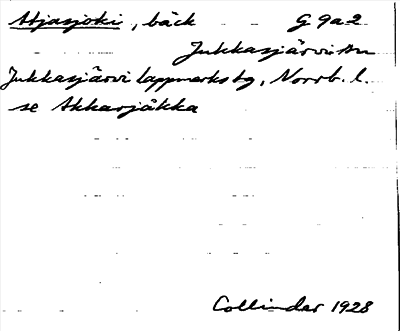 Atjasjoki, bäck G 9a2
Jukkasjärvi sn
Jukkasjärvi lappmarks tg, Norrb. l.
se Akkasjåkka
Collinder 1928